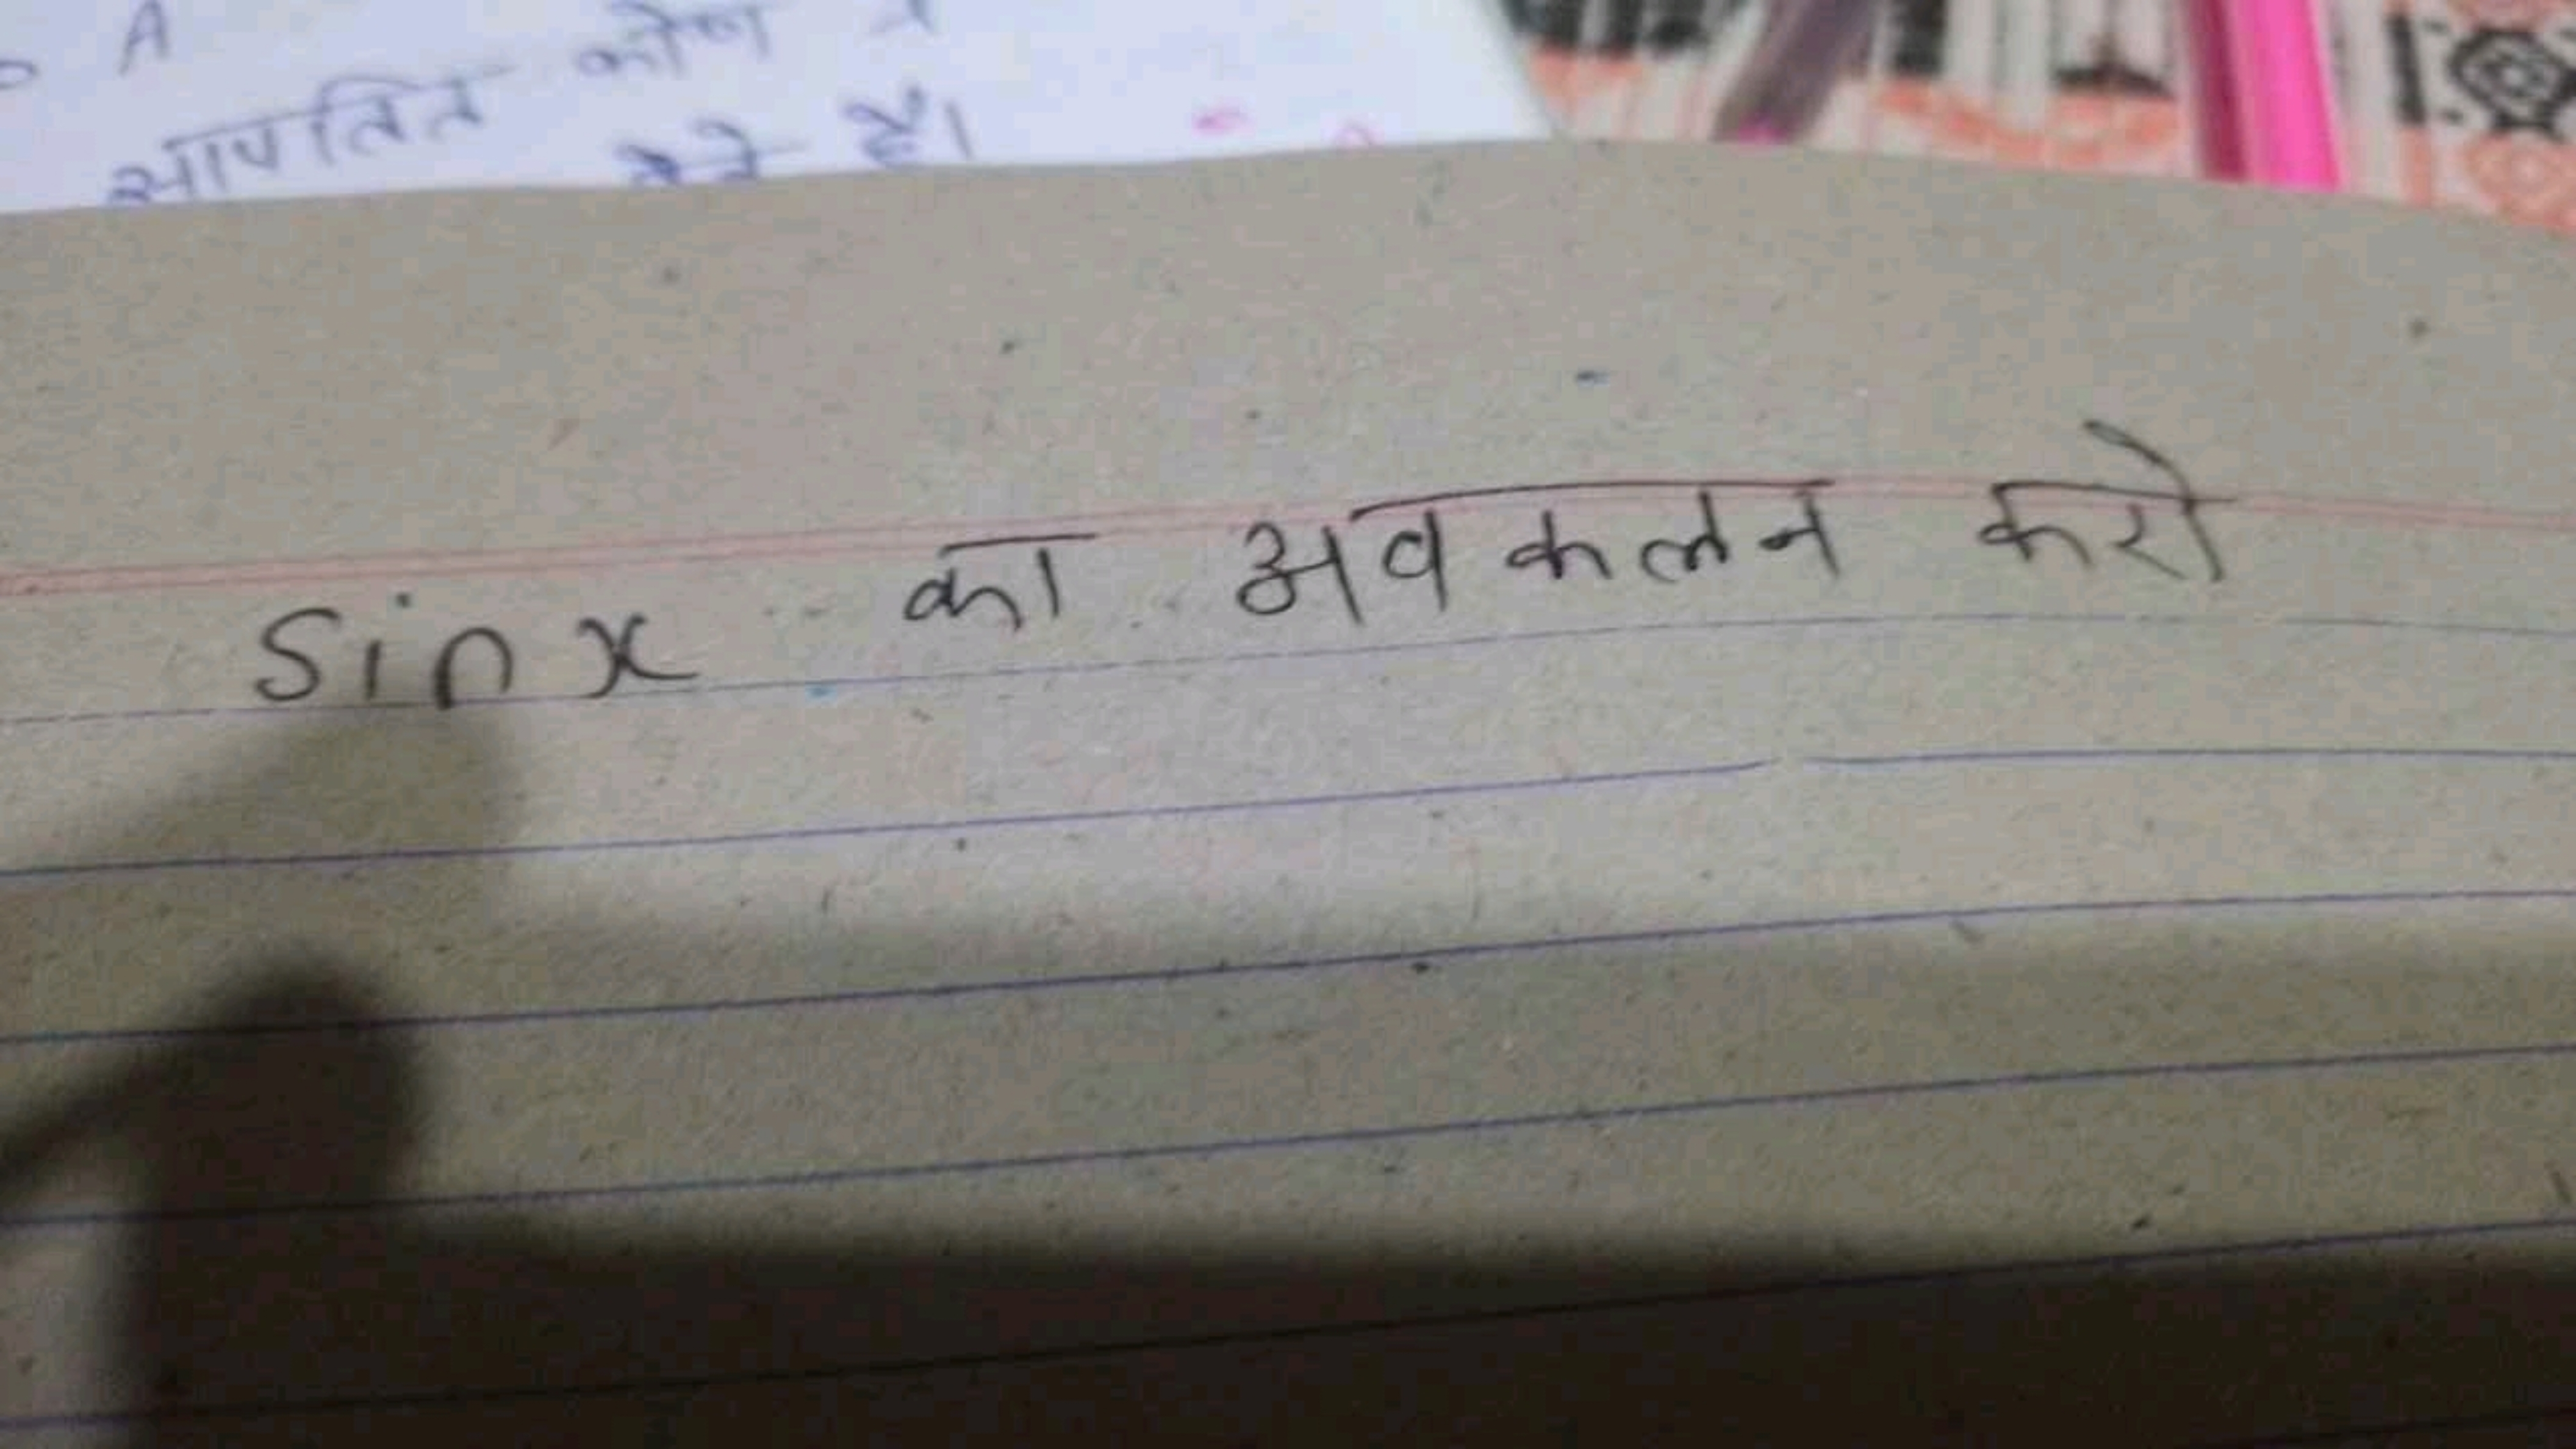 A
आपतित कोण
हैं।
sin x का अवकलन करो